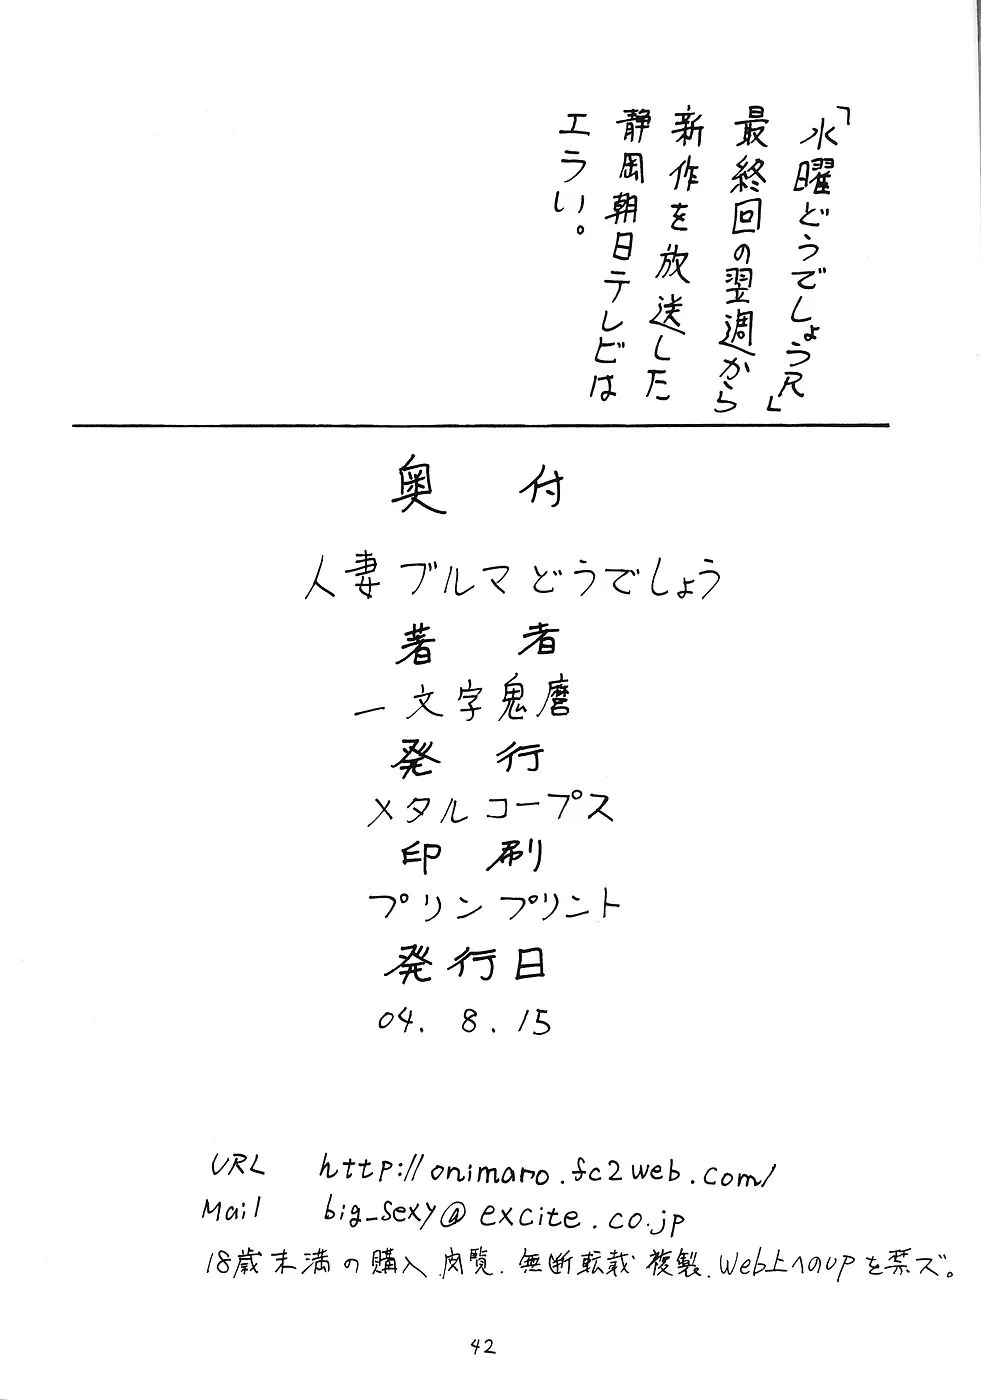 「水曜どうでしょうR」
最終回の翌週から
新作を放送した
静岡朝日テレビは
エラい。
奥付
人妻ブルマどうでしょう
著者
一文字鬼麿
発行
メタルコープス
印刷
プリンプリント
発行日
04.8.15
URL http://onimaro.fc2web.com/
Mail big_sexy@excite.co.jp
18歳未満の購入、閲覧、無断転載、複製、Web上へのUPを禁ズ。
42